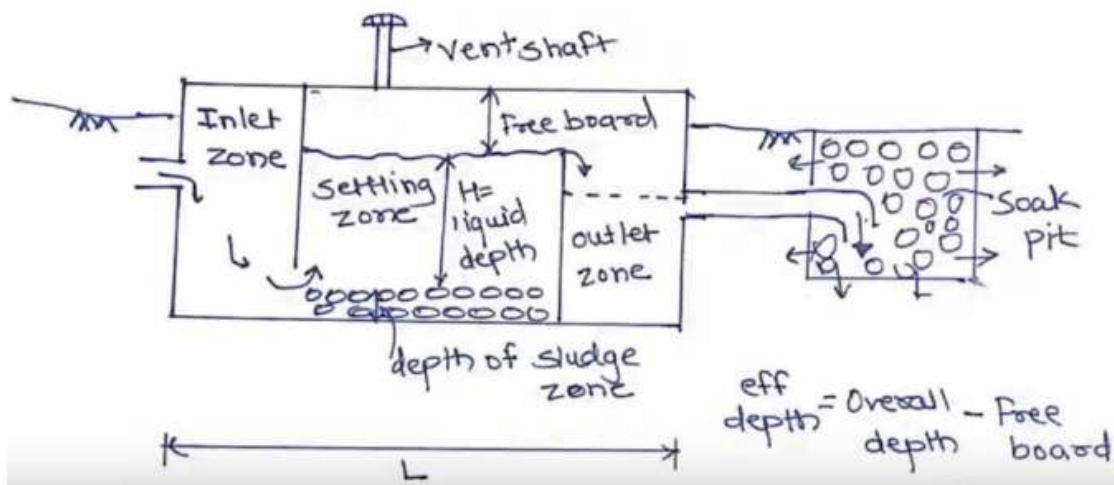 vent shaft
Inlet
zone
Free board
settling
zone
H=
liquid
depth
outlet
zone
soak
pit
depth of sludge
zone
eff
depth = Overall
depth - Free
board
L